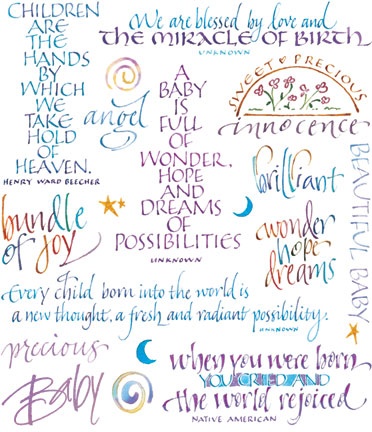 CHILDREN
ARE
THE
HANDS
BY
WHICH
WE
TAKE
HOLD
OF
HEAVEN.
HENRY WARD BEECHER
We are blessed by love and
THE MIRACLE OF BIRTH
UNKNOWN
angel
A
BABY
IS
FULL
OF
WONDER,
HOPE
AND
DREAMS
OF
POSSIBILITIES
UNKNOWN
SWEET PRECIOUS
innocence
brilliant
BEAUTIFUL BABY
bundle
of joy
wonder
hope
dreams
Every child born into the world is
a new thought, a fresh and radiant possibility.
UNKNOWN
precious
Baby
when you were born
YOU CRIED AND
the world rejoiced
NATIVE AMERICAN